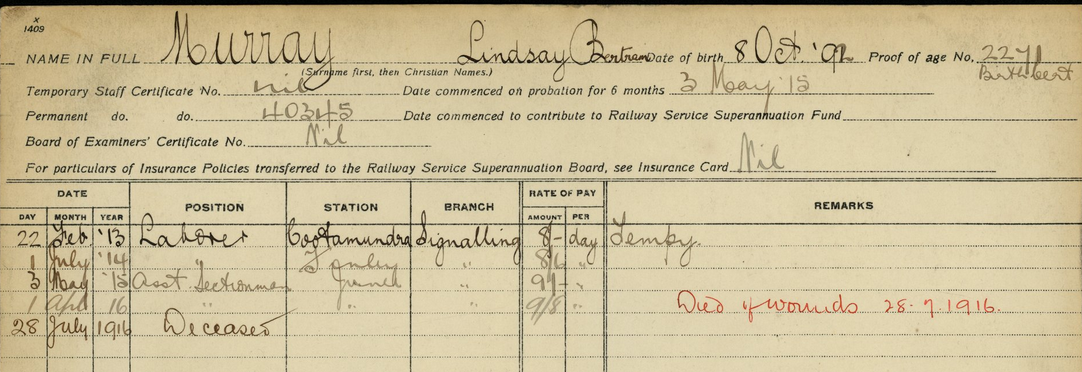 x
1409
NAME IN FULL Murray Lindsay Bertram Date of birth 8 Oct. '92 Proof of age No. 2271
(Surname first, then Christian Names.) Birth Cert
Temporary Staff Certificate No. nil Date commenced on probation for 6 months 3 May '15
Permanent do. do. 40345 Date commenced to contribute to Railway Service Superannuation Fund
Board of Examiners' Certificate No. Nil
For particulars of Insurance Policies transferred to the Railway Service Superannuation Board, see Insurance Card Nil
DATE POSITION STATION BRANCH RATE OF PAY REMARKS
DAY MONTH YEAR AMOUNT PER
22 Feb. '13 Laborer Cootamundra Signalling 8/- day Tempy.
1 July '14 " " 8/6 "
3 May '15 Asst Sectionman Junee " 9/- "
1 Apl 16 " " " 9/8 " Died of wounds 28.7.1916.
28 July 1916 Deceased